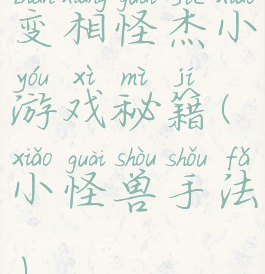 biàn xiàng guài jié xiǎo
变相怪杰小
yóu xì mì jí
游戏秘籍(
xiǎo guài shòu shǒu fǎ
小怪兽手法
)